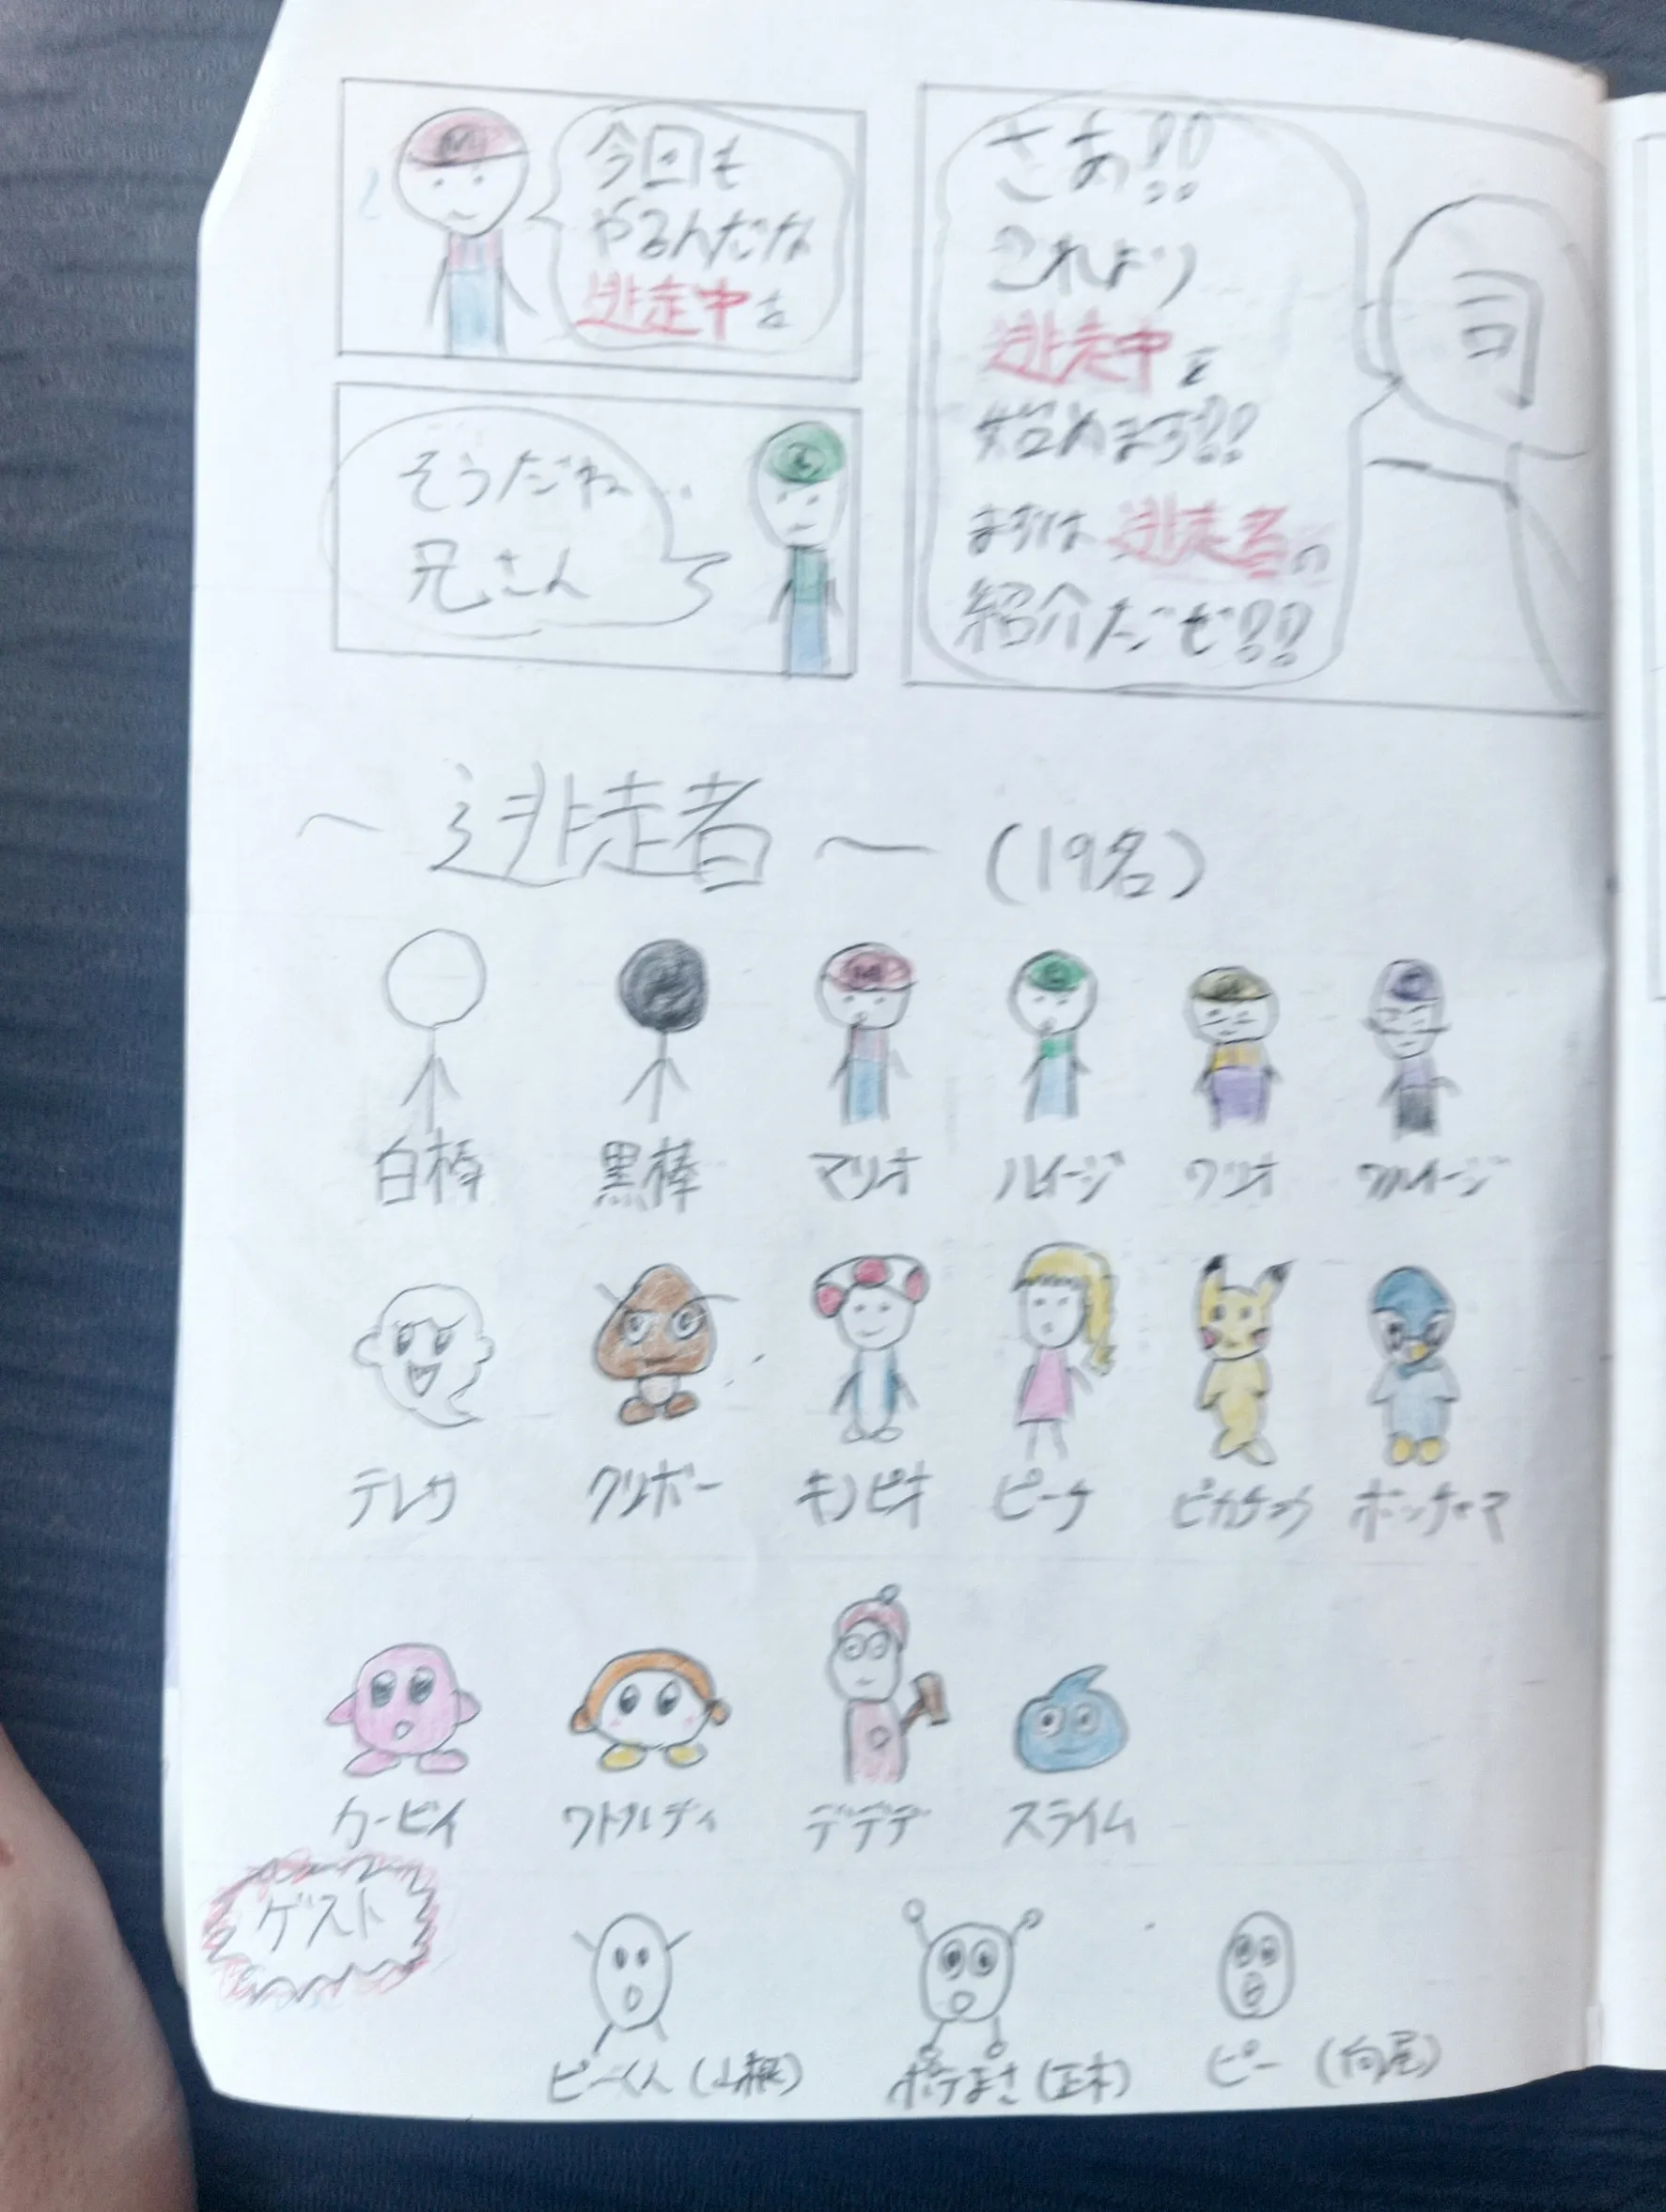 今回も
やるんだな
逃走中を
そうだね…
兄さん
さあ!!
これより
逃走中を
始めます!!
まずは逃走者の
紹介だぜ!!
司
～逃走者～(19名)
白棒 黒棒 マリオ ルイージ ワリオ ワルイージ
テレサ クリボー キノピオ ピーチ ピカチュウ ポッチャマ
カービィ ワドルディ デデデ スライム
ゲスト
ピーくん(山根) まさ(正木) ピー(向尾)